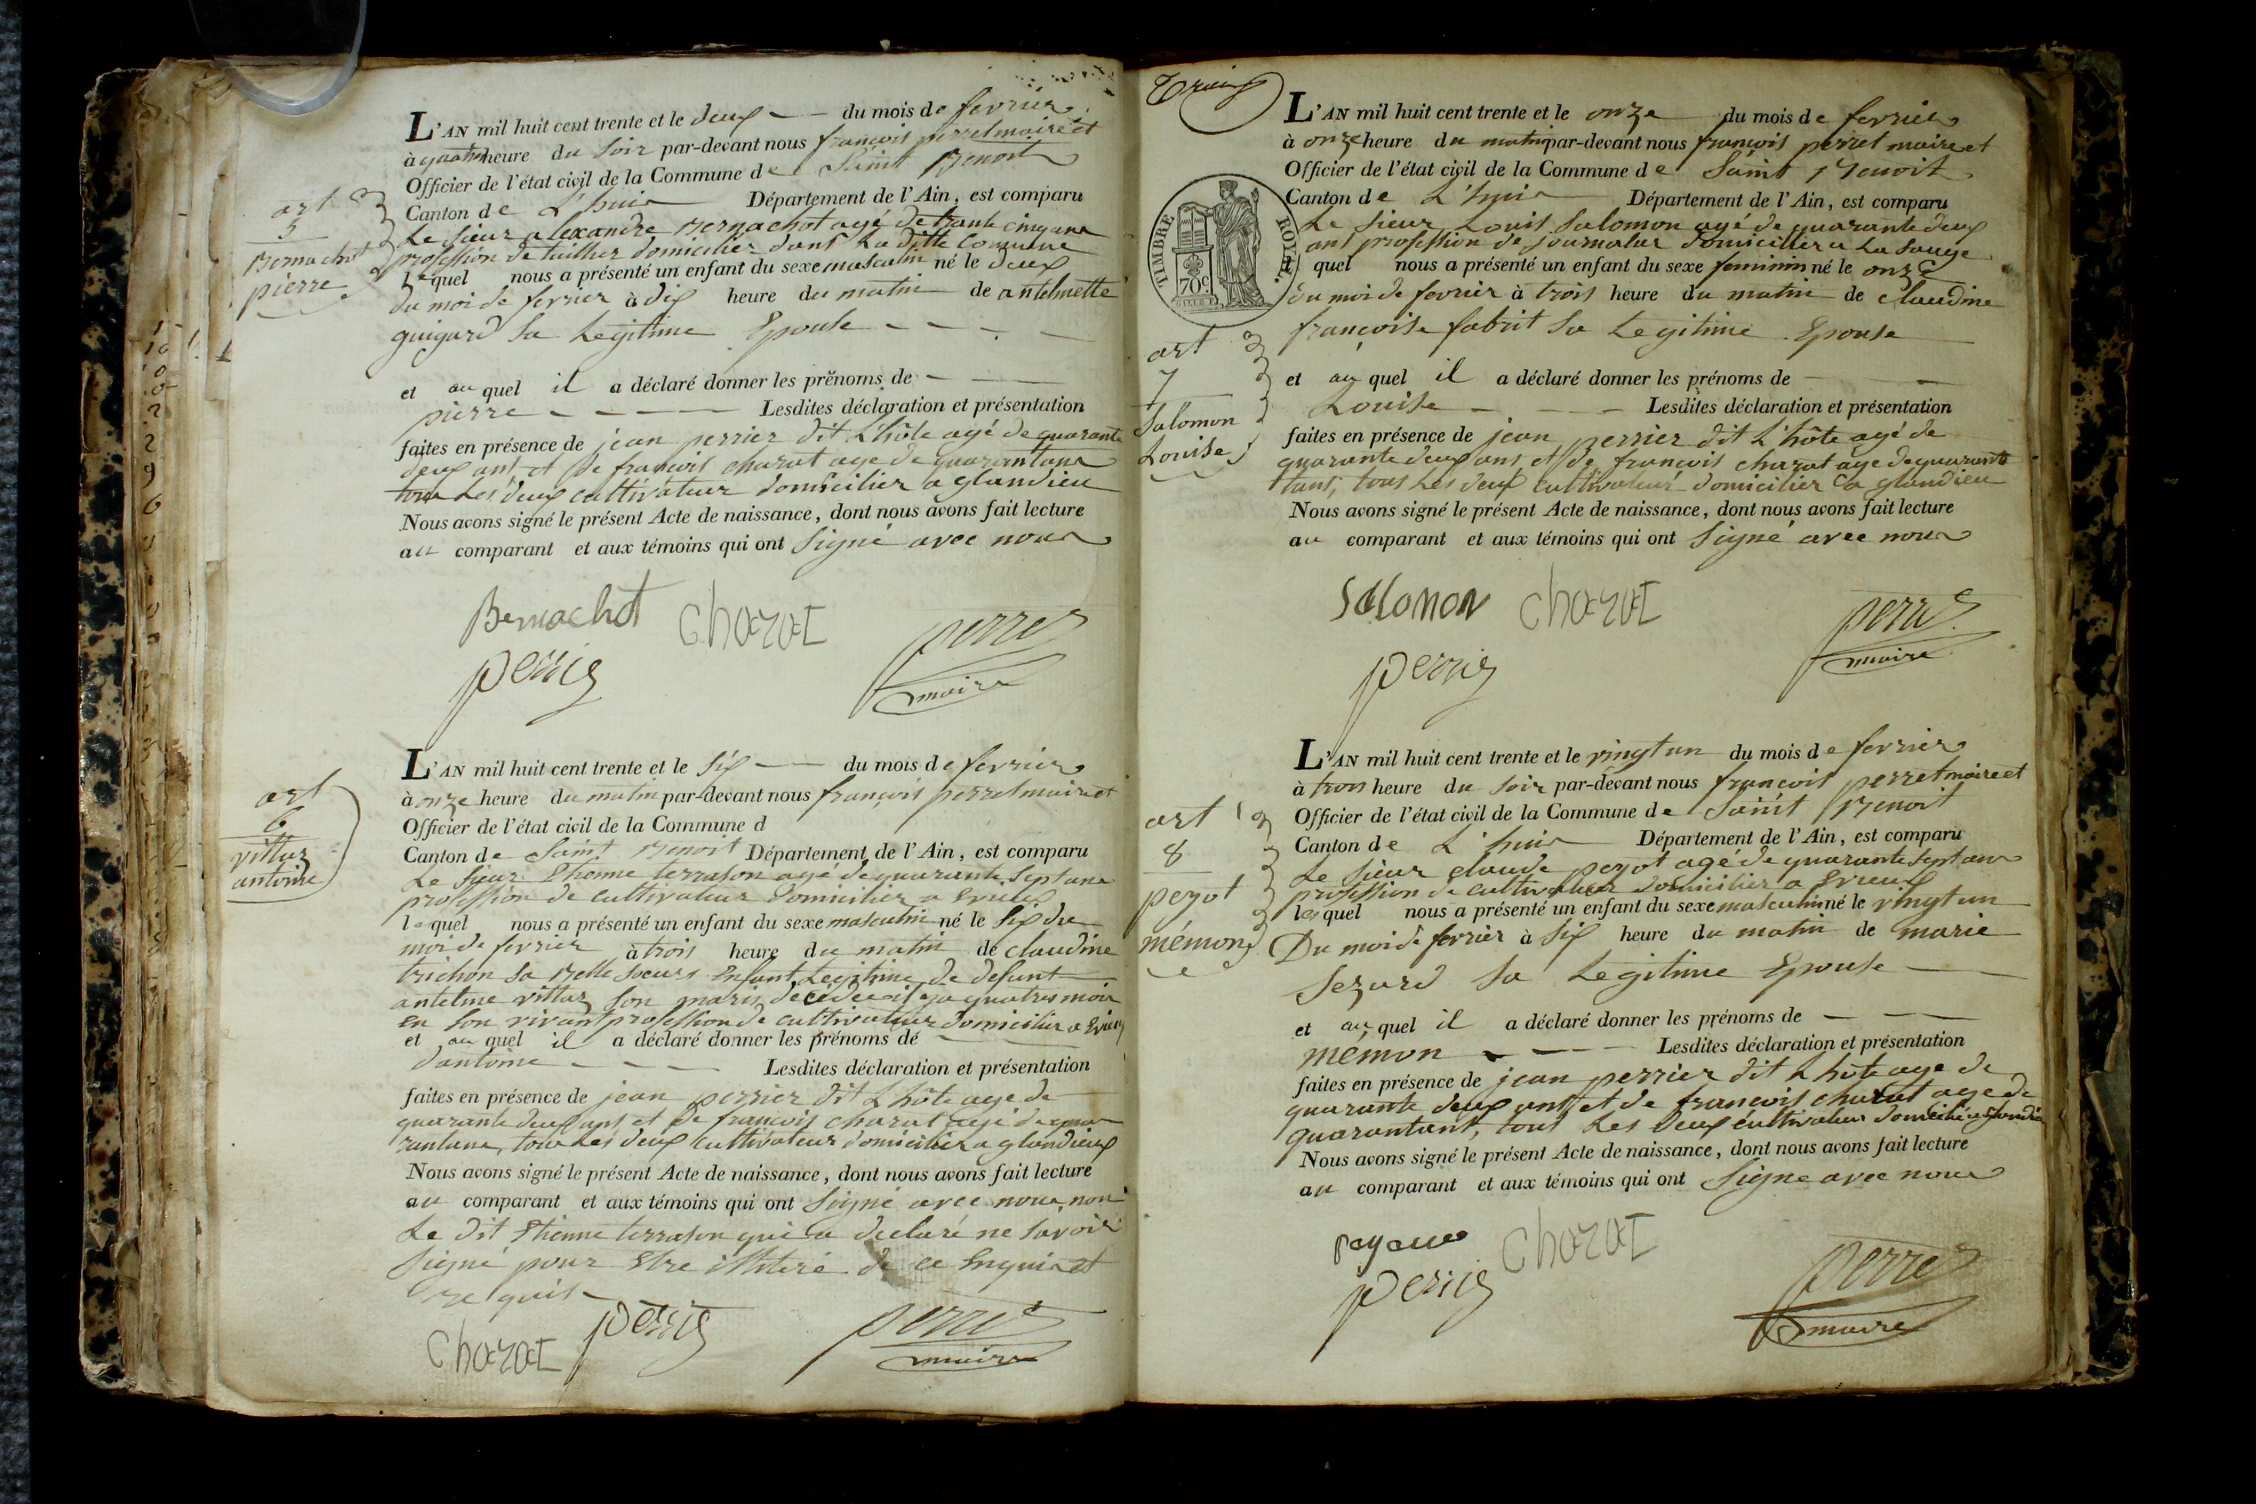 art
5
Bernachot
pierre
L'AN mil huit cent trente et le deux du mois de fevrier
à quatre heure du soir par-devant nous françois perret maire et
Officier de l'état civil de la Commune de Saint Benoit
Canton de L'huis Département de l'Ain, est comparu
Le sieur alexandre Bernachot agé de trante cinq ans
profession de taillier domicilier dans La ditte Commune
lequel nous a présenté un enfant du sexe masculin né le deux
du moi de fevrier à dix heure du matin de antelmette
guigard sa Legitime Epouse
et au quel il a déclaré donner les prénoms de
pierre Lesdites déclaration et présentation
faites en présence de jean perrier dit L'hôte agé de quarante
deux ans et de françois charat age de quarantans
tous Les deux cultivateur domicilier a glandieu
Nous avons signé le présent Acte de naissance, dont nous avons fait lecture
au comparant et aux témoins qui ont Signé avec nous
Bernachot charat
perrier perret
maire
art
6
vittaz
antoine
L'AN mil huit cent trente et le six du mois de fevrier
à onze heure du matin par-devant nous françois perret maire et
Officier de l'état civil de la Commune d
Canton de Saint Benoit Département de l'Ain, est comparu
Le sieur Etienne terrason agé de quarante sept ans
profession de cultivateur domicilier a
lequel nous a présenté un enfant du sexe masculin né le six du
moi de fevrier à trois heure du matin de claudine
trichon sa Belle soeurs Enfant Legitime de defunt
antelme vittaz son maris décédé il y a quatres mois
en son vivant profession de cultivateur domicilier a
et au quel il a déclaré donner les prénoms de
d'antoine Lesdites déclaration et présentation
faites en présence de jean perrier dit L'hôte age de
quarante deux ans et de françois charat agé de qua
rantans, tous Les deux Cultivateur domicilier a glandieux
Nous avons signé le présent Acte de naissance, dont nous avons fait lecture
au comparant et aux témoins qui ont Signé avec nous, non
Le dit Etienne terrason qui a declaré ne savoir
signé pour Etre illiteré de ce Enquis et
requis
charat perrier perret
maire
TIMBRE ROYAL
70c
art
7
Salomon
Louise
L'AN mil huit cent trente et le onze du mois de fevrier
à onze heure du matin par-devant nous françois perret maire et
Officier de l'état civil de la Commune de Saint Benoit
Canton de L'huis Département de l'Ain, est comparu
Le sieur Louis Salomon agé de quarante deux
ans profession de journalier domicilier a La Sauge
quel nous a présenté un enfant du sexe feminin né le onze
du moi de fevrier à trois heure du matin de claudine
françoise fabrit sa Legitime Epouse
et au quel il a déclaré donner les prénoms de
Louise Lesdites déclaration et présentation
faites en présence de jean perrier dit L'hôte agé de
quarante deux ans et de françois charat age de quaran
tans, tous Les deux cultivateur domicilier a glandieu
Nous avons signé le présent Acte de naissance, dont nous avons fait lecture
au comparant et aux témoins qui ont Signé avec nous
Salomon charat
perrier perret
maire
art
8
pezot
mémon
L'AN mil huit cent trente et le vingt un du mois de fevrier
à trois heure du soir par-devant nous françois perret maire et
Officier de l'état civil de la Commune de Saint Benoit
Canton de L'huis Département de l'Ain, est comparu
Le sieur claude pezot agé de quarante sept ans
profession de cultivateur domicilier a Evieux
lequel nous a présenté un enfant du sexe masculin né le vingt un
Du moi de fevrier à six heure du matin de marie
Sezard sa Legitime Epouse
et au quel il a déclaré donner les prénoms de
mémon Lesdites déclaration et présentation
faites en présence de jean perrier dit L'hôte age de
quarante deux ans et de françois charat age de
quarantans, tous Les deux cultivateur domicilié a glandieu
Nous avons signé le présent Acte de naissance, dont nous avons fait lecture
au comparant et aux témoins qui ont Signe avec nous
charat
perrier perret
maire